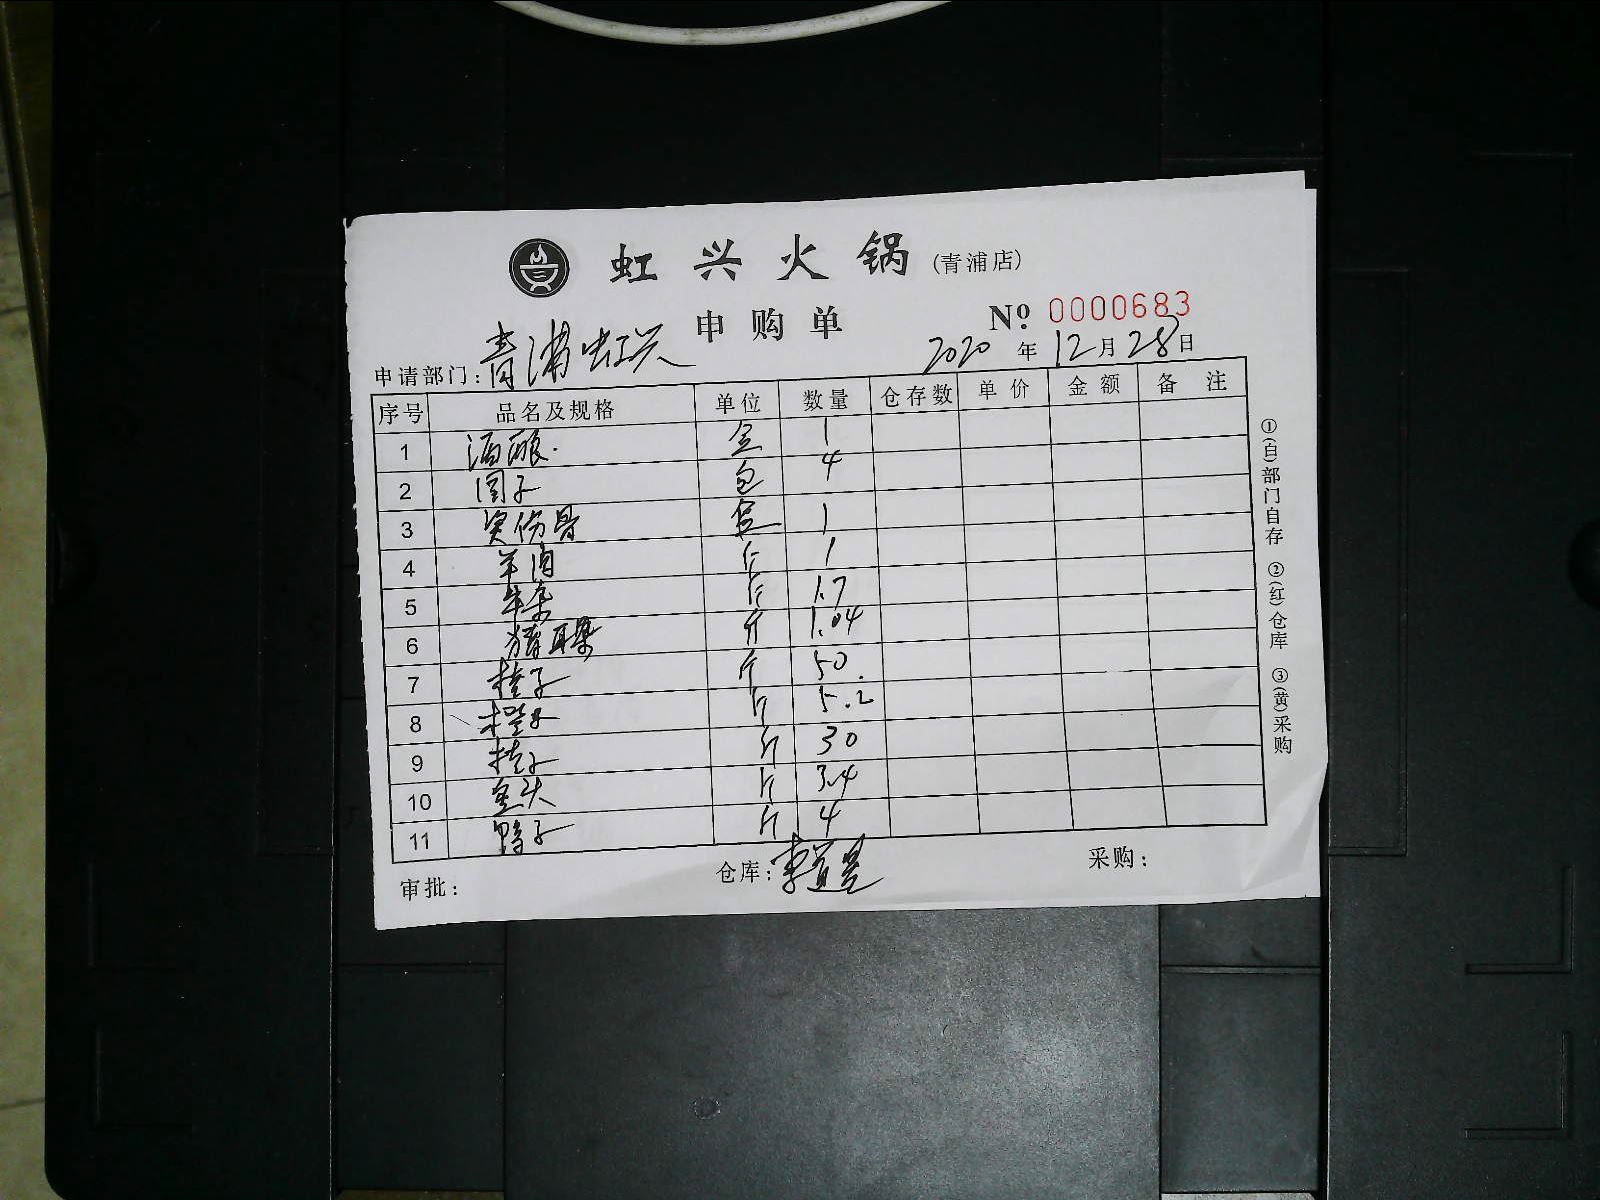 虹兴火锅(青浦店)
申购单
№ 0000683
申请部门: 青浦虹兴 2020年12月28日
序号 品名及规格 单位 数量 仓存数 单价 金额 备注
1 酒酿. 盒 1
2 圆子 包 4
3 盒 1
4 羊肉 斤 1
5 斤 1.7
6 斤 1.04
7 斤 50.
8 斤 5.2
9 斤 30
10 鱼头 斤 3.4
11 鸭子 斤 4
审批: 仓库: 采购:
①(白)部门自存 ②(红)仓库 ③(黄)采购